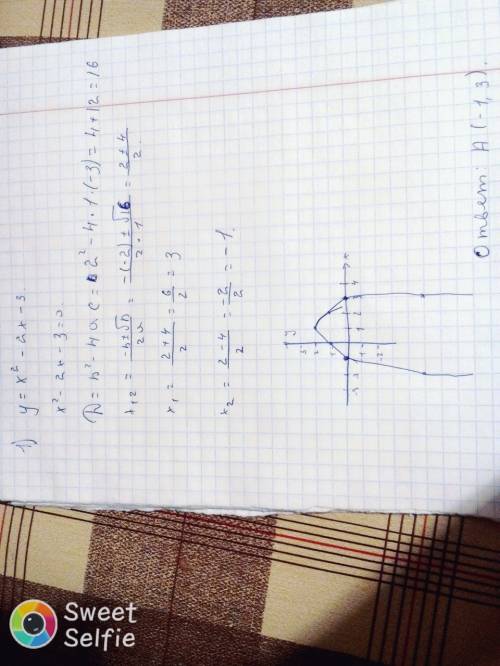 1) y = x² - 2x - 3.
x² - 2x - 3 = 0.
D = b² - 4ac = 2² - 4·1·(-3) = 4 + 12 = 16
x₁,₂ = -b±√D / 2a = -(-2)±√16 / 2·1 = 2±4 / 2.
x₁ = 2+4 / 2 = 6 / 2 = 3
x₂ = 2-4 / 2 = -2 / 2 = -1.
y
x
1 2 3 4
Ответ: А (-1, 3).
Sweet
Selfie